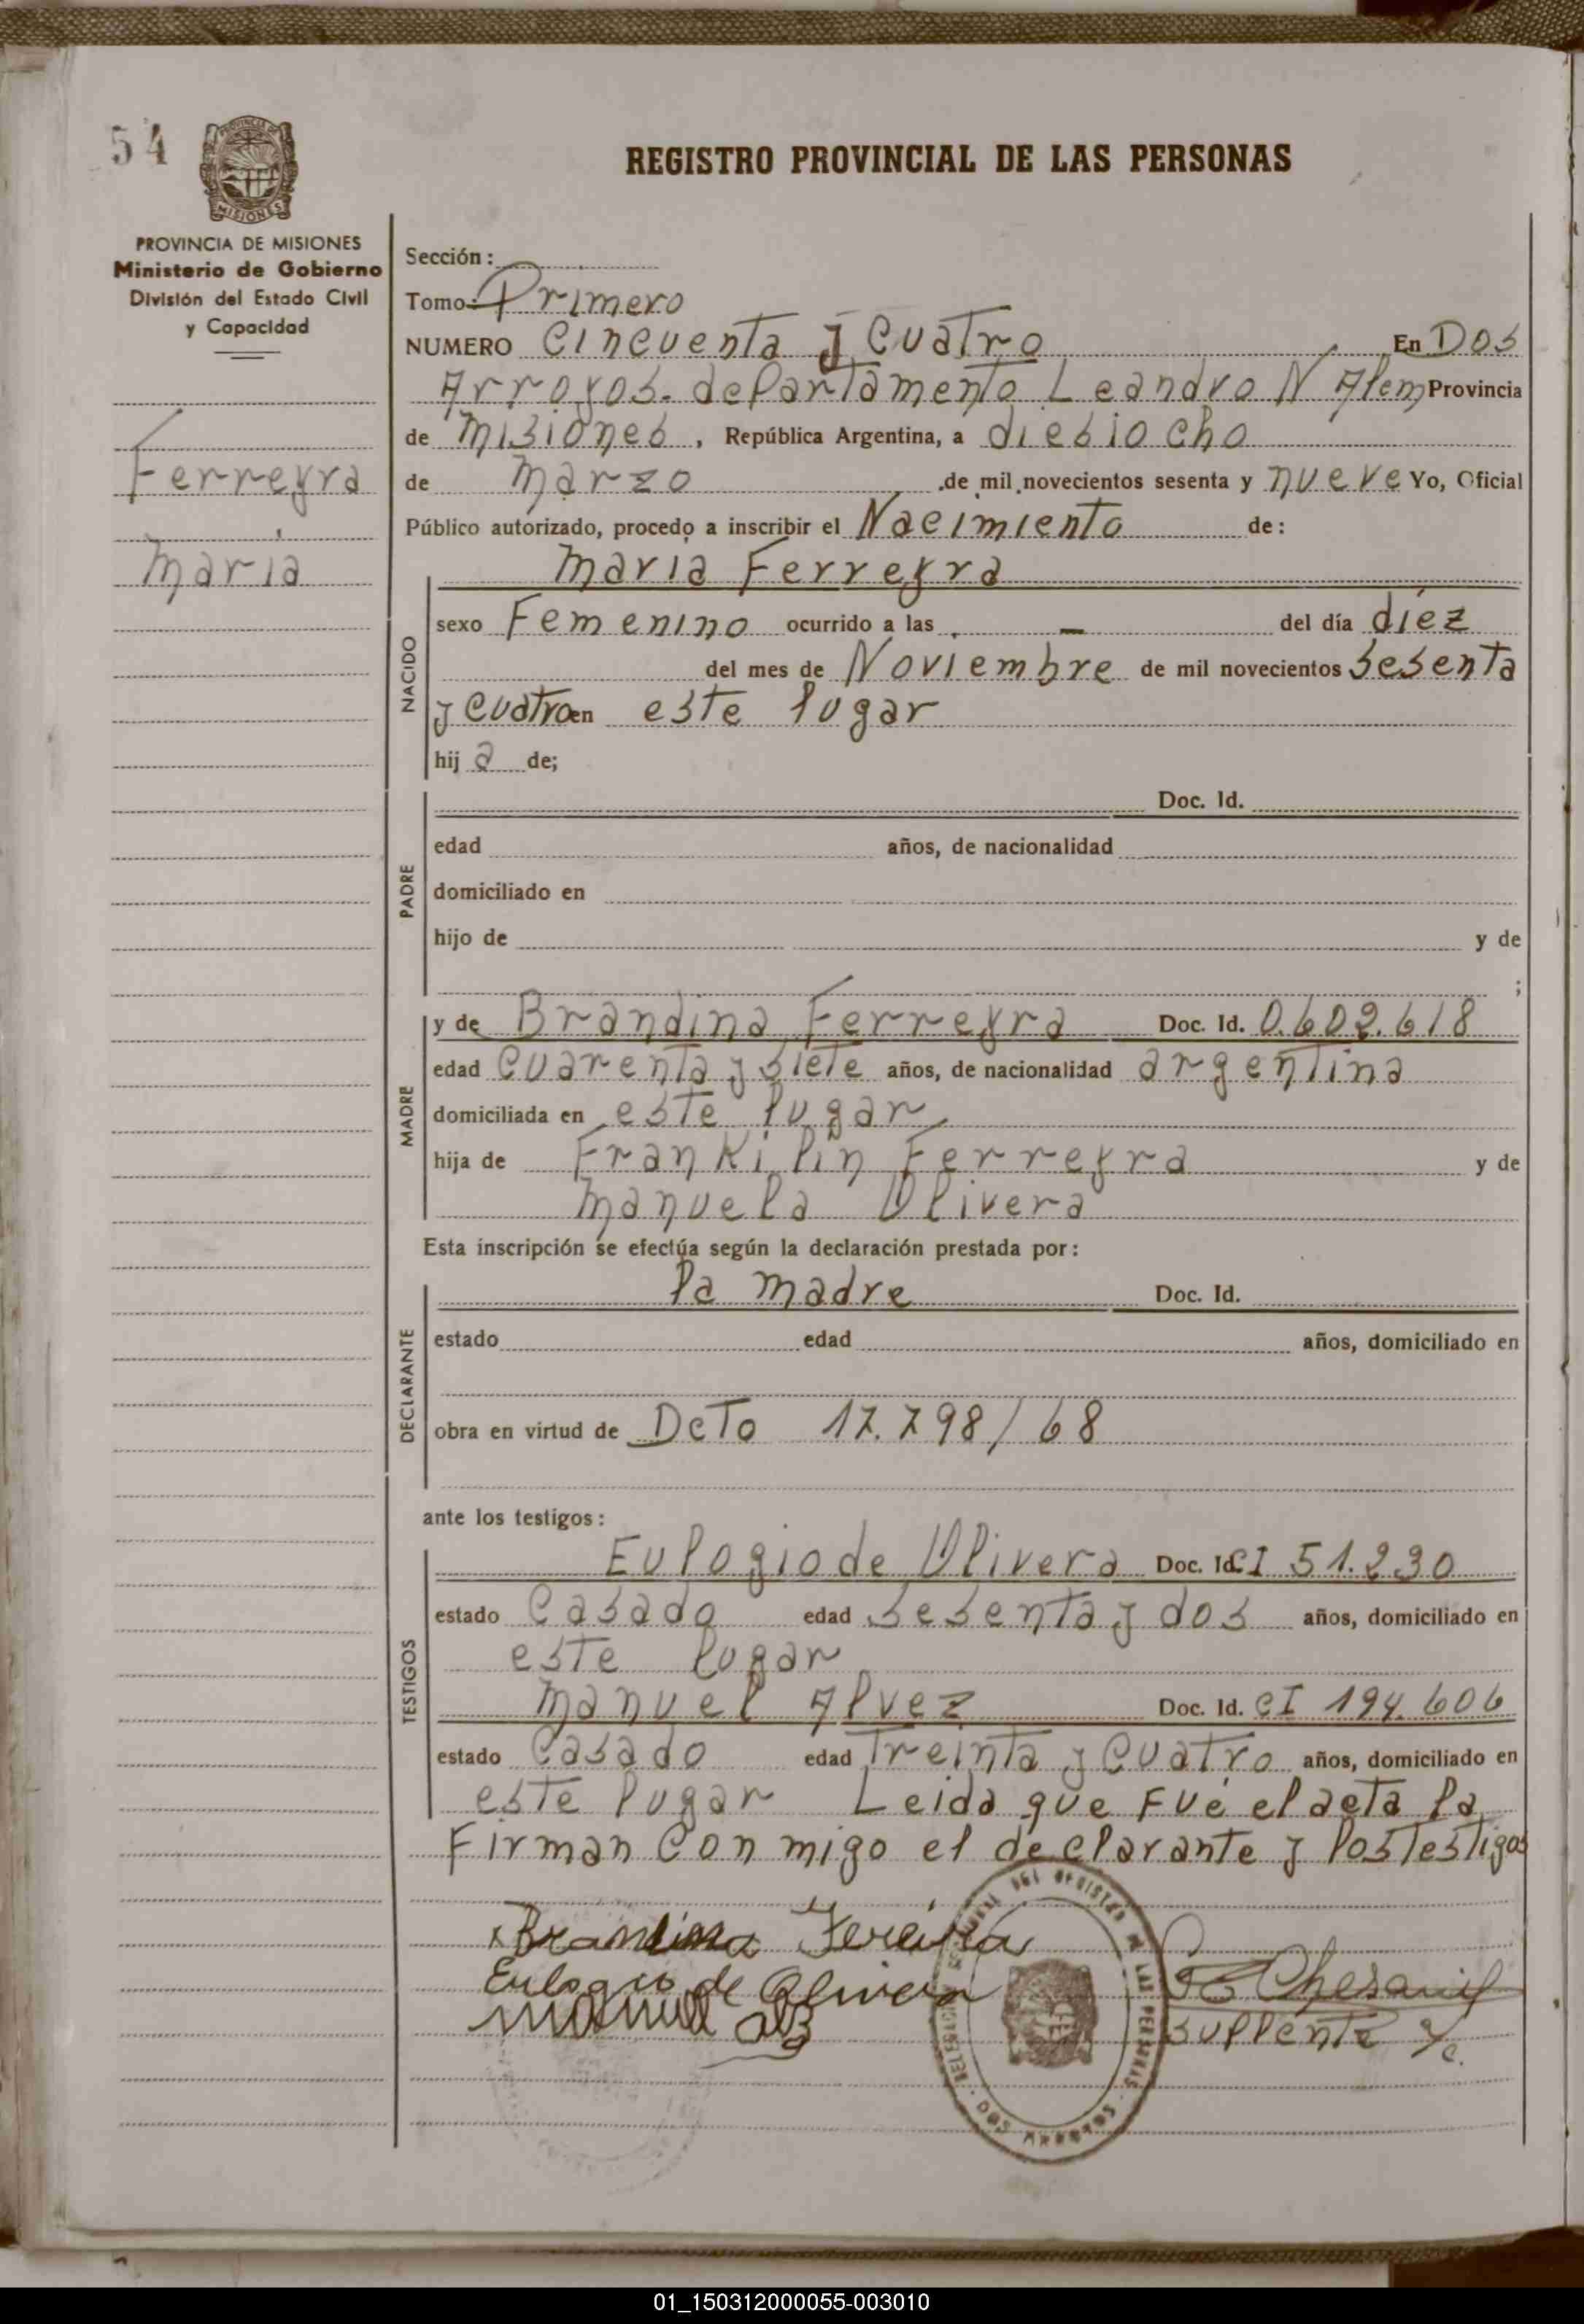 54
MISIONES
PROVINCIA DE MISIONES
Ministerio de Gobierno
División del Estado Civil
y Capacidad
Ferreyra
Maria
REGISTRO PROVINCIAL DE LAS PERSONAS
Sección:
Tomo: Primero
NUMERO Cincuenta y Cuatro En Dos
Arroyos. departamento Leandro N Alem Provincia
de Misiones, República Argentina, a diesiocho
de Marzo de mil novecientos sesenta y nueve Yo, Oficial
Público autorizado, procedo a inscribir el Nacimiento de:
Maria Ferreyra
NACIDO
sexo Femenino ocurrido a las - del día diez
del mes de Noviembre de mil novecientos Sesenta
y Cuatro en este lugar
hij a de;
PADRE
Doc. Id.
edad años, de nacionalidad
domiciliado en
hijo de y de
;
MADRE
y de Brandina Ferreyra Doc. Id. 0.602.618
edad Cuarenta y Siete años, de nacionalidad argentina
domiciliada en este lugar
hija de Frankilin Ferreyra y de
Manuela Olivera
Esta inscripción se efectúa según la declaración prestada por:
DECLARANTE
la madre Doc. Id.
estado edad años, domiciliado en
obra en virtud de Dcto 17.798/68
ante los testigos:
TESTIGOS
Eulogio de Olivera Doc. Id. CI 51.230
estado Casado edad Sesenta y dos años, domiciliado en
este lugar
Manuel Alvez Doc. Id. CI 194.606
estado Casado edad Treinta y Cuatro años, domiciliado en
este lugar Leida que Fué el acta la
Firman Con migo el declarante y los Testigos
x Brandina Fereira
Eulogio de Olivera
Manuel
Suplente
DOS ARROYOS
01_150312000055-003010